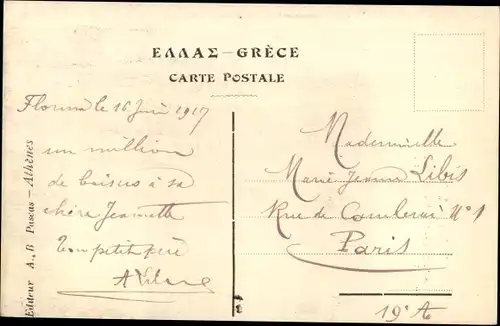 ΕΛΛΑΣ – GRÈCE
CARTE POSTALE
Florina le 16 Juin 1917
un million
de baisers à sa
chère Jeannette
Ton petit père
Mademoiselle
Marie Jeanne Libis
Rue de N° 1
Paris
19e A
Editeur A. B Pascas – Athènes